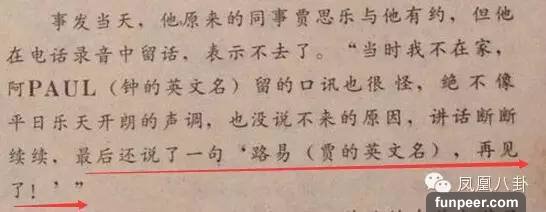 事发当天，他原来的同事贾思乐与他有约，但他
在电话录音中留话，表示不去了。“当时我不在家，
阿PAUL（钟的英文名）留的口讯也很怪，绝不像
平日乐天开朗的声调，也没说不来的原因，讲话断断
续续，最后还说了一句‘路易（贾的英文名），再见
了！’”
凤凰八卦
funpeer.com